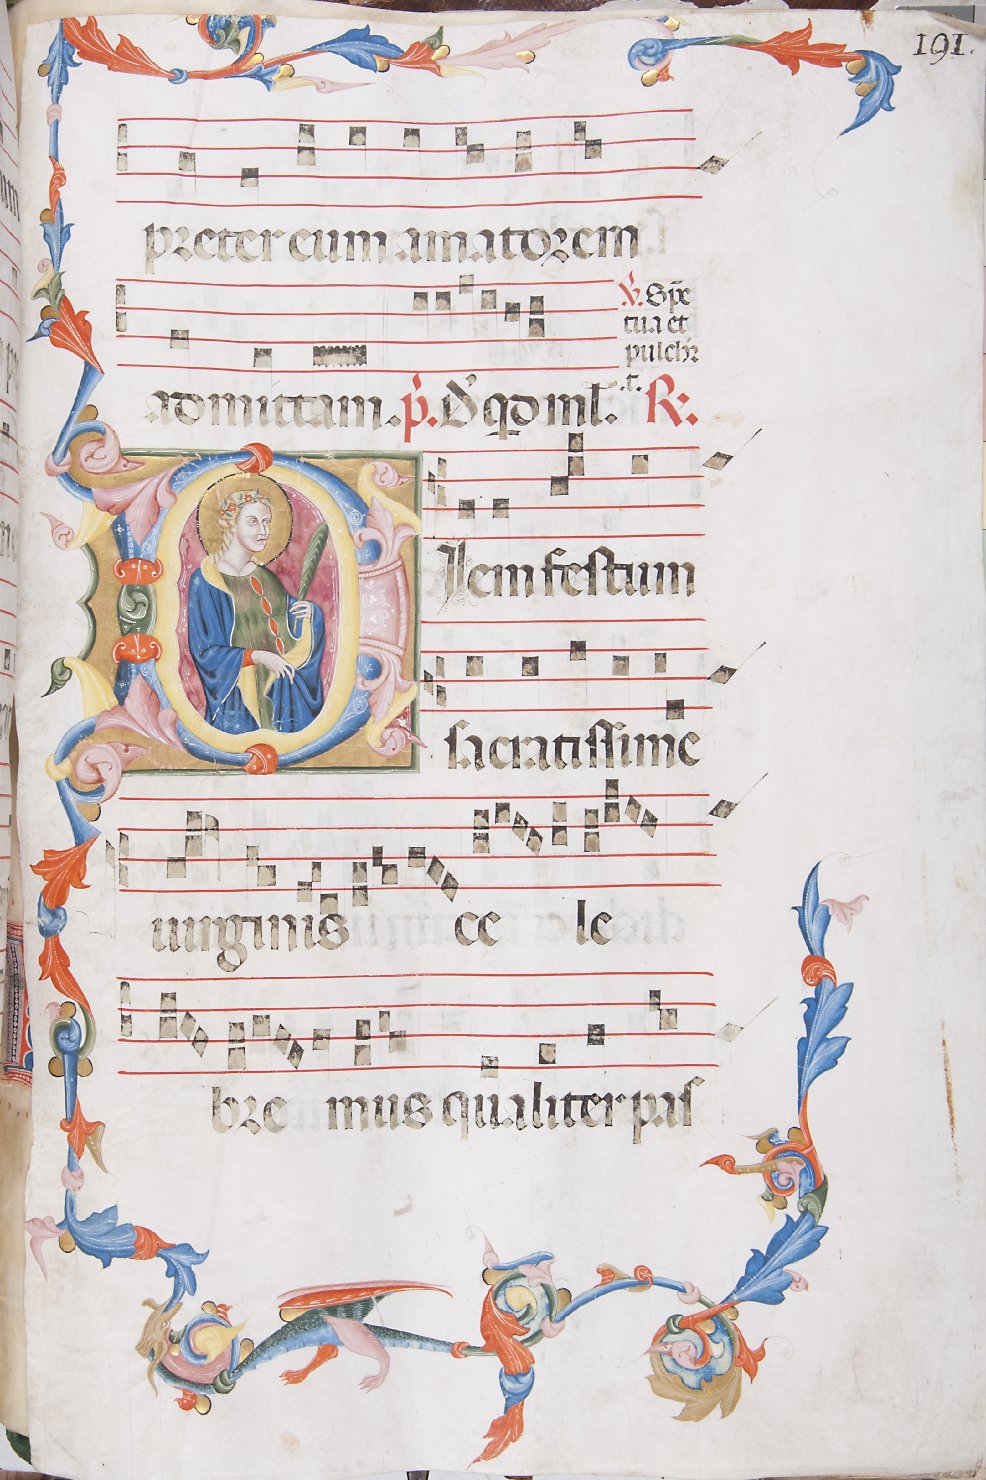 191.
preter eum amatorem
℣. Spē
tua et
pulchr̄
t.
admittam. p̄. D̄ qd ml̄. R.
Diem festum
sacratissime
uirginis ce le
bre mus qualiter pas